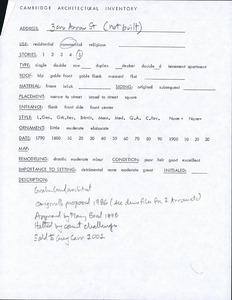 CAMBRIDGE ARCHITECTURAL INVENTORY
ADDRESS: Zero Arrow St (not built)
USE: residential commercial religious
STORIES: 1 2 3 4 5
TYPE: single double row duplex decker double d tenement apartment
ROOF: hip gable front gable flank mansard flat
MATERIAL: frame brick SIDING: original subsequent
PLACEMENT: narrow to street broad to street square
ENTRANCE: flank front side front center
ORNAMENT: little moderate elaborate
DATE: 1790 1800 10 20 30 40 50 60 70 80 90 1900 10 20 20
MAP:
REMODELING: drastic moderate minor CONDITION: poor fair good excellent
IMPORTANCE TO SETTING: detrimental none moderate great INITIALED:
DESCRIPTION:
Graham Gund architect
Originally proposed 1986 (see demo files for 2 Arrow etc)
Approved by Planning Board 1998
Halted by court challenges
Sold to Greg Carr 2002